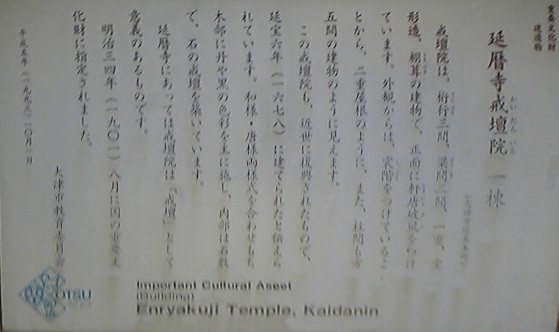 重要文化財
建造物
延暦寺戒壇院 一棟
かいだんいん
戒壇院は、桁行三間、梁間三間、一重、宝
形造、栩葺の建物で、正面に軒唐破風をつけ
ています。外観からは、裳階をつけているこ
とから、二重屋根のように、また、柱間も方
五間の建物のように見えます。
この戒壇院も、近世に復興されたもので、
延宝六年(一六七八)に建てられたと伝えら
れています。和様・唐様両様式を合わせもち
木部に丹や黒の色彩を主に施し、内部は石敷
で、石の戒壇を築いています。
延暦寺にあっては戒壇院は「戒壇」として
意義のあるものです。
明治三四年(一九〇一)八月に国の重要文
化財に指定されました。
大津市教育委員会
平成五年(一九九三)一〇月一日
OTSU
Important Cultural Asset
(Building)
Enryakuji Temple, Kaidanin